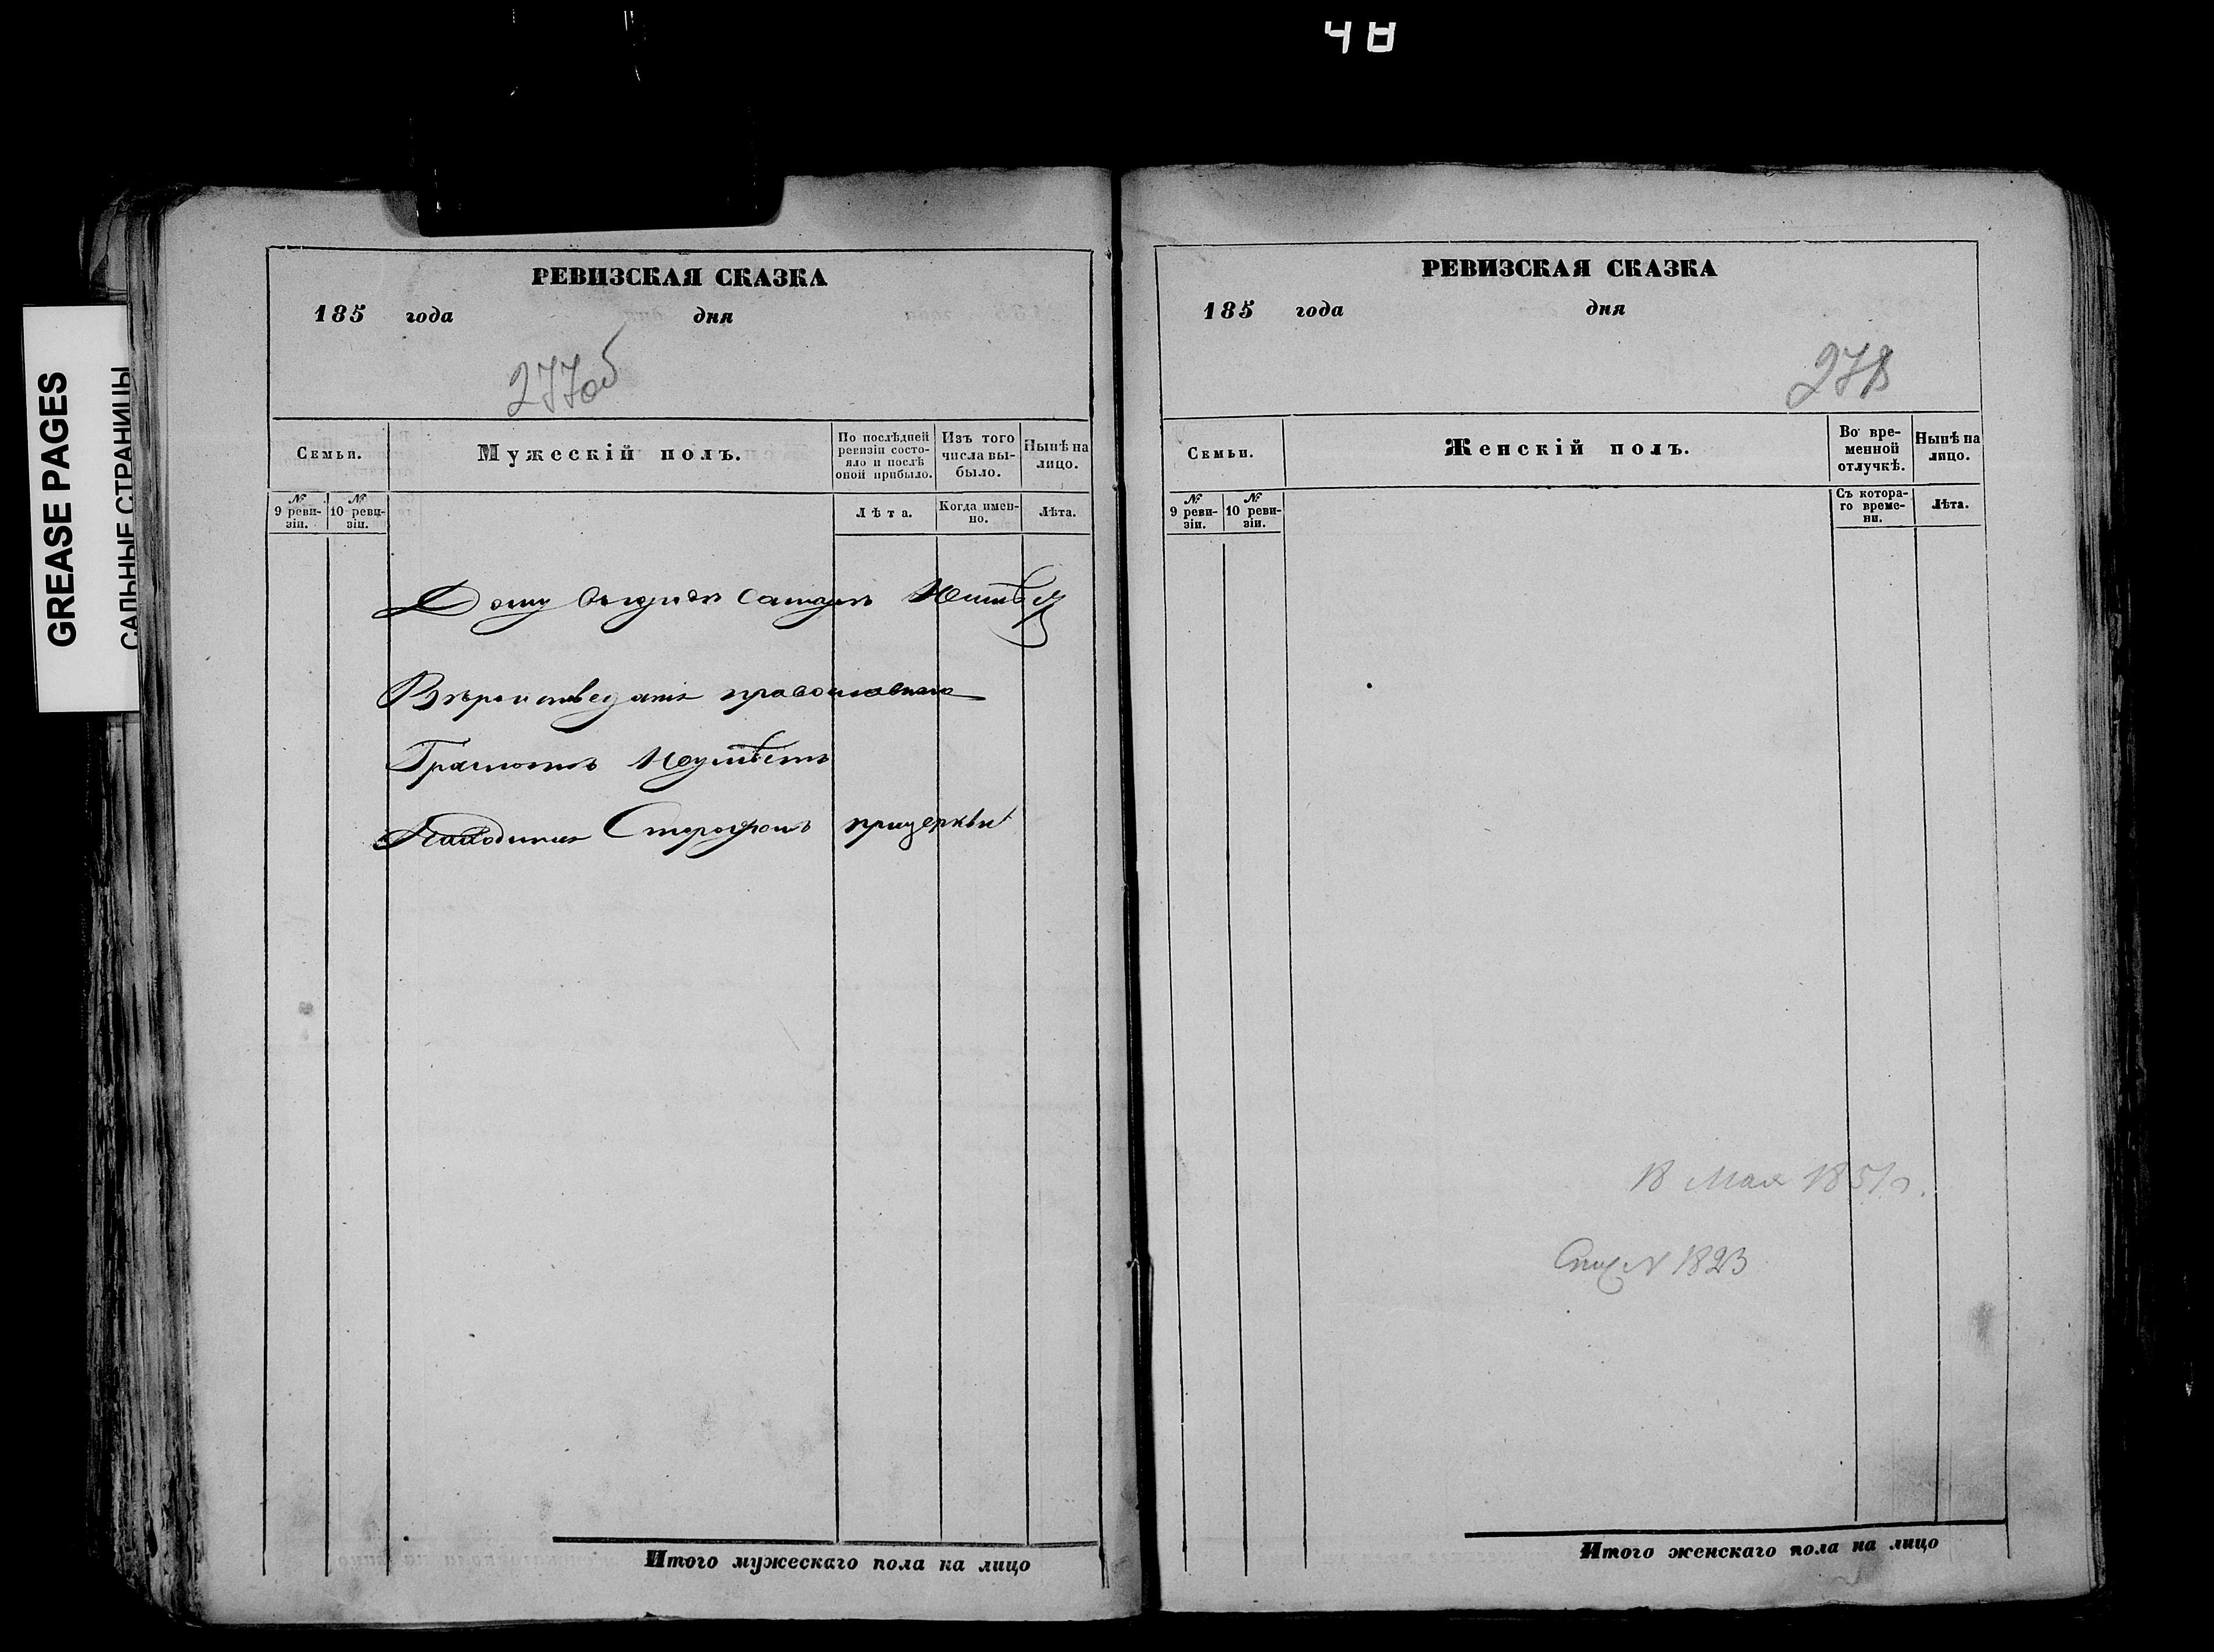 48
GREASE PAGES
САЛЬНЫЕ СТРАНИЦЫ
РЕВИЗСКАЯ СКАЗКА
185 года дня
277об
Семьи.
Мужескій полъ.
По послѣдней ревизіи состояло и послѣ оной прибыло.
Изъ того числа выбыло.
Нынѣ на лицо.
№ 9 ревизіи.
№ 10 ревизіи.
Лѣта.
Когда именно.
Лѣта.
Дому
Вѣроисповеданія православнаго
Грамотѣ Неумѣетъ
Находится Сторожомъ прицеркви
Итого мужескаго пола на лицо
РЕВИЗСКАЯ СКАЗКА
185 года дня
278
Семьи.
Женскій полъ.
Во временной отлучкѣ.
Нынѣ на лицо.
№ 9 ревизіи.
№ 10 ревизіи.
Съ котораго времени.
Лѣта.
18 Мая 1851 г.
N 1823
Итого женскаго пола на лицо